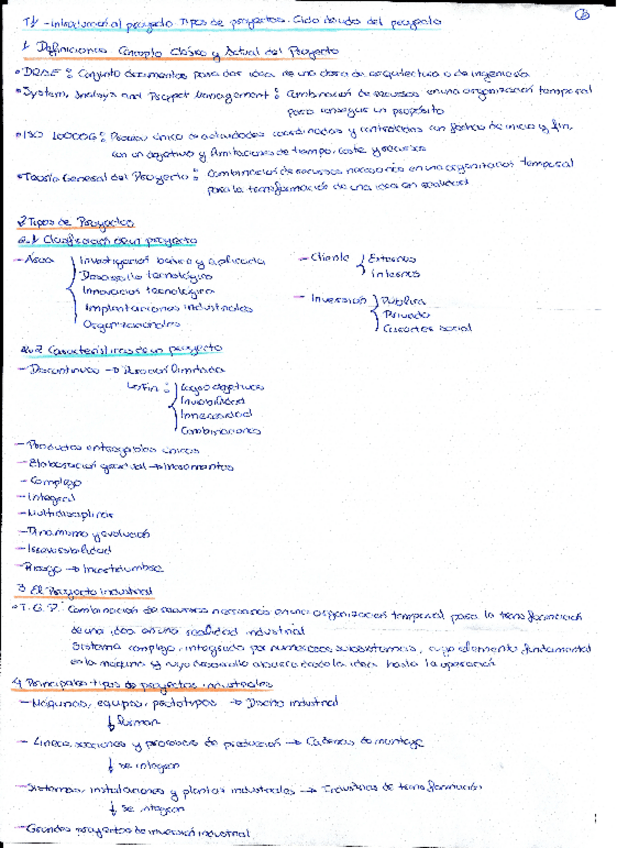 T1 - Introducción al proyecto. Tipos de proyectos. Ciclo de vida del proyecto
1. Definiciones. Concepto Clásico y Actual del Proyecto
• DRAE: Conjunto documentos para dar idea de una obra de arquitectura o de ingeniería
• System, Analisys and Project Management: Combinación de recursos en una organización temporal
para conseguir un propósito
• ISO 10006: Proceso único de actividades coordinadas y controladas con fechas de inicio y fin,
con un objetivo y limitaciones de tiempo, coste y recursos
• Teoría General del Proyecto: Combinación de recursos necesarios en una organización temporal
para la transformación de una idea en realidad
2. Tipos de Proyectos
2.1 Clasificación de un proyecto
- Área
Investigación básica y aplicada
Desarrollo tecnológico
Innovación tecnológica
Implantaciones industriales
Organizacionales
- Cliente
Externos
Internos
- Inversión
Pública
Privada
Carácter social
2.2 Características de un proyecto
- Discontinuos → Duración limitada
↳ Fin:
Logro objetivos
Inviabilidad
Innecesidad
Combinaciones
- Productos entregables únicos
- Elaboración gradual → Incrementos
- Complejo
- Integral
- Multidisciplinar
- Dinamismo y evolución
- Irreversibilidad
- Riesgo → Incertidumbre
3. El Proyecto Industrial
• T.G.P: Combinación de recursos necesarios en una organización temporal para la transformación
de una idea en una realidad industrial
Sistema complejo, integrado por numerosos subsistemas, cuyo elemento fundamental
es la máquina y cuyo desarrollo abarca desde la idea hasta la operación
4. Principales tipos de proyectos industriales
- Máquinas, equipos, prototipos → Diseño industrial
↓ forman
- Líneas, secciones y procesos de producción → Cadenas de montaje
↓ se integran
- Sistemas, instalaciones y plantas industriales → Industrias de transformación
↓ se integran
- Grandes proyectos de inversión industrial